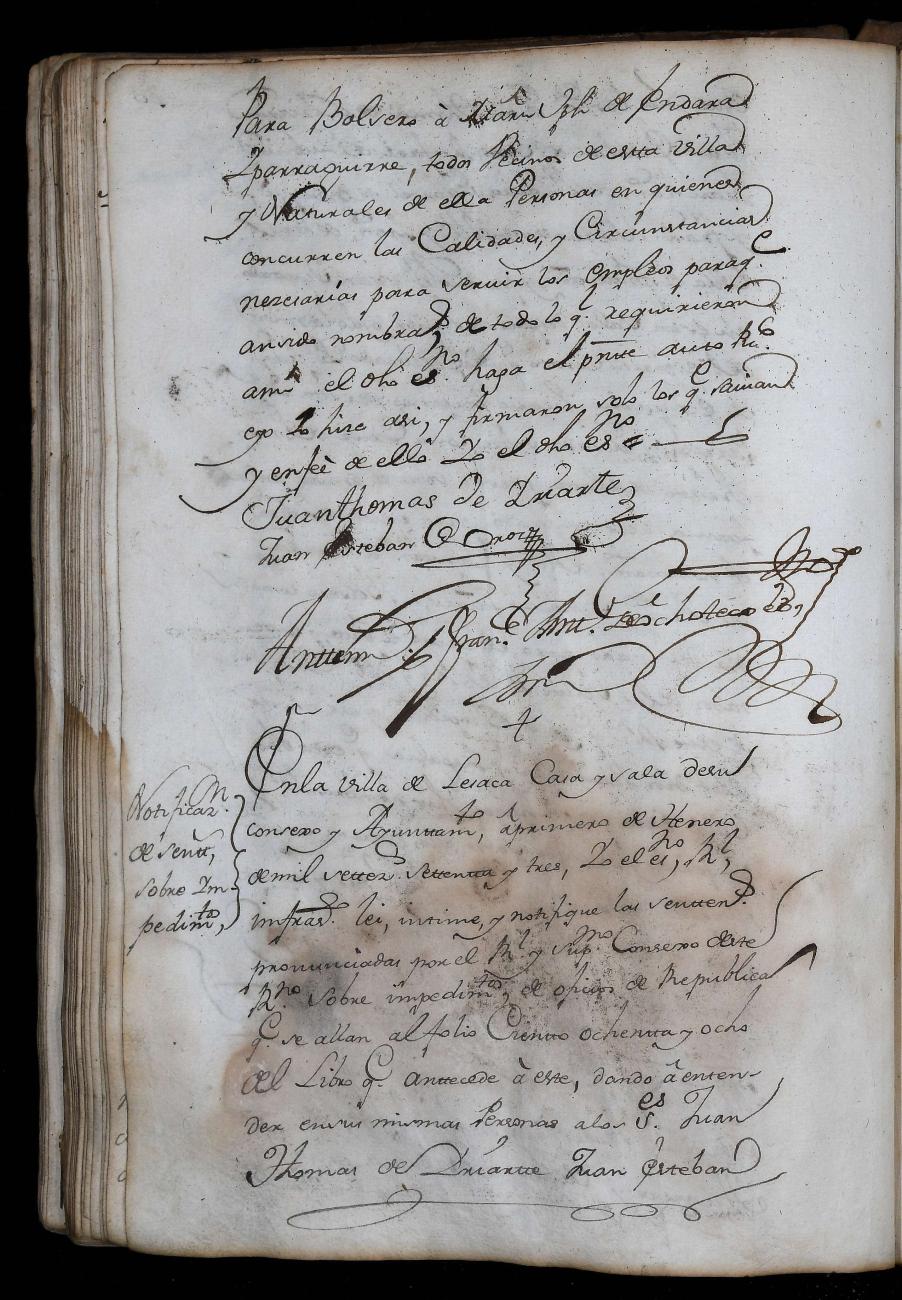 Para Bolsero à Juan Jph de Endara
Yparraguirre, todos Vecinos de esta villa
y Naturales de ella Personas en quienes
concurren las Calidades, y Circunstancias
nezesarias para servir los empleos paraq.e
an sido nombra.s, de todo lo q.l requirieron
ami el dho es.no haga el pnte auto R.o
ego Yo hize asi, y firmaron solo los q.e savian
y en feè de ello Yo el dho es.no =
Juan thomas de Yriarte
Juan Esteban
Antemi. Fran.co Ant.o es.no
+
En la villa de Lesaca Casa y sala de su
Notificaz.n
consexo y Ayunttam.to, à primero de Henero
de sentt,
de mil settez.s settenta y tres, Yo el es.no, R.l,
sobre Ym-
infras.to lei, intime, y notifique las sentten.s
pedim.to,
pronunciadas por el R.l y sup.mo Consexo deste
R.no sobre impedim.tos, de oficios de Republica
q.e se allan al folio Ciento ochenta y ocho
del Libro q.e anttecede à este, dando à enten-
der en sus mismas Personas a los s.es Juan
Thomas de Yriartte Juan Esteban